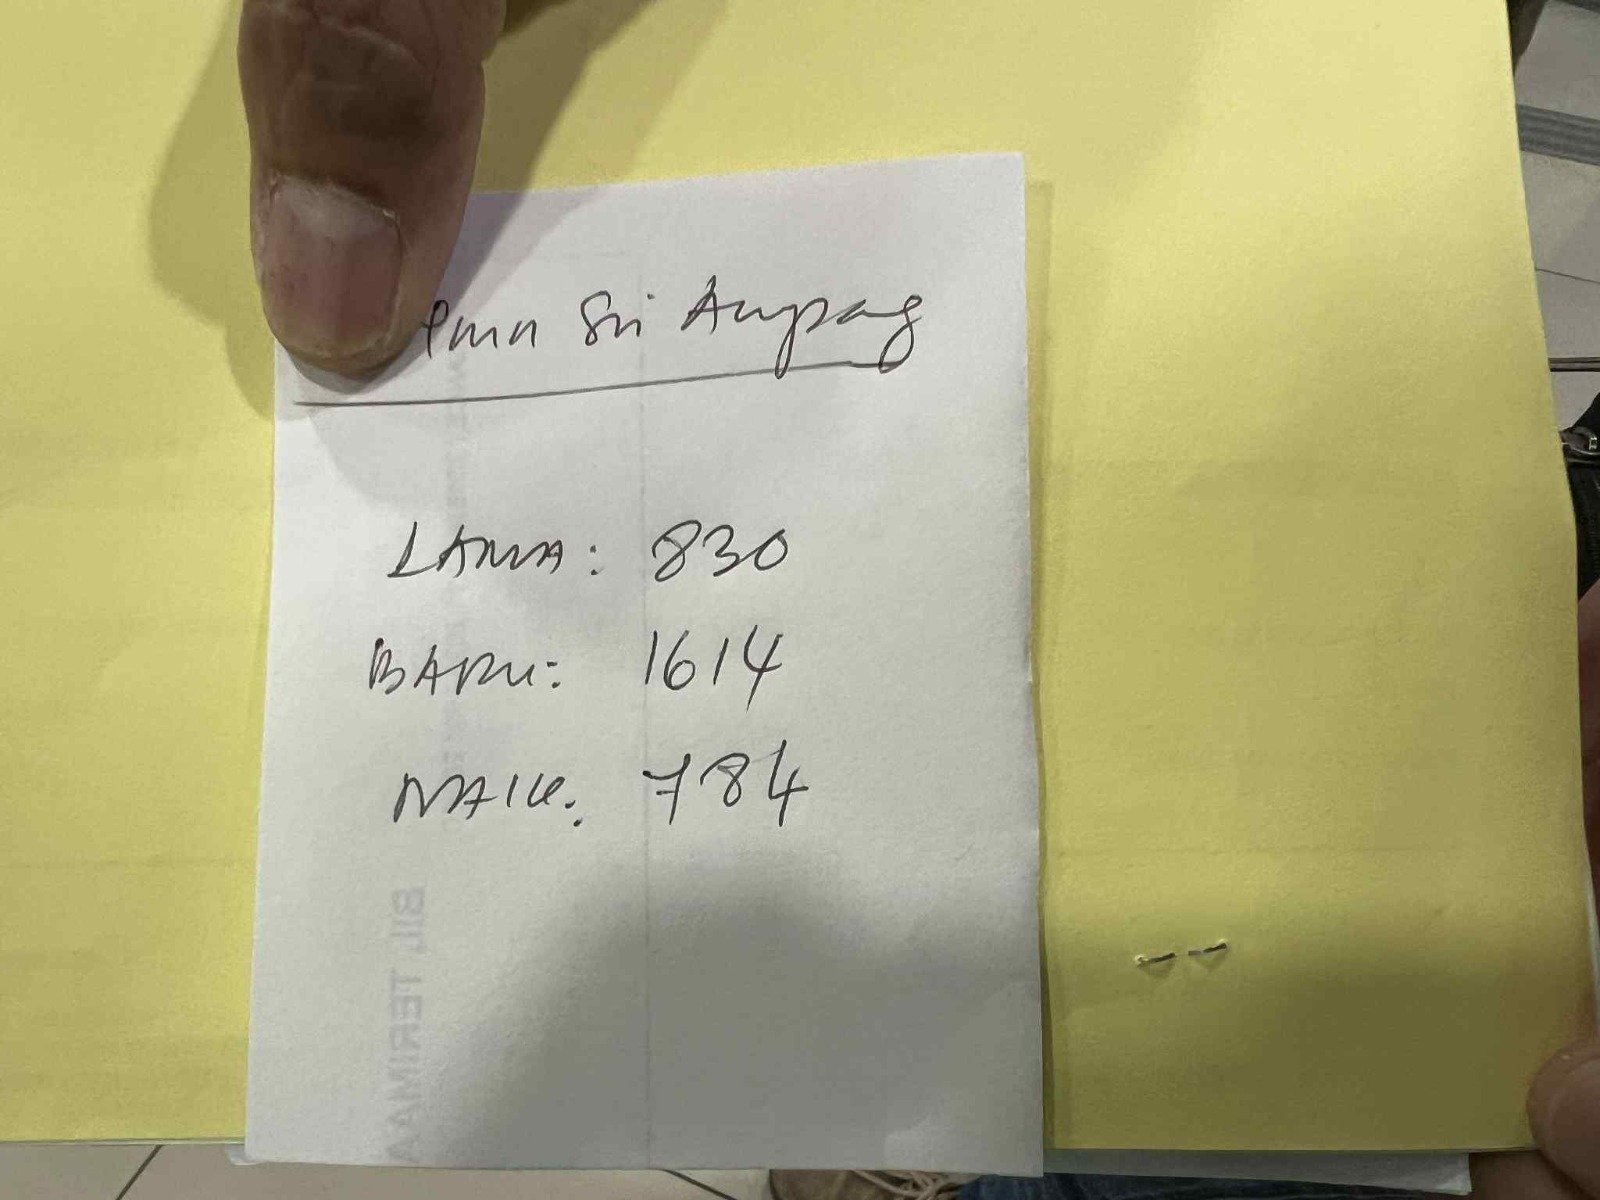 Sri Ampang
LAMA: 830
BARU: 1614
NAIK: 784
BIL TERIMAA